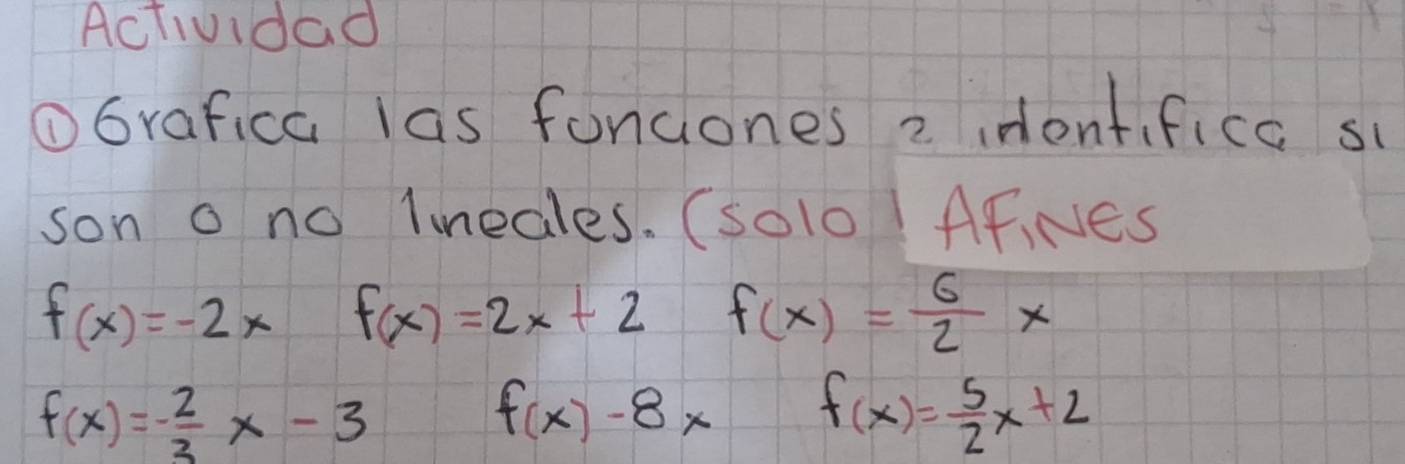 Actividad
① Grafica las funciones e identifica si
son o no lineales. (solo AFINES
f(x)=-2x f(x)=2x+2 f(x)=6/2 x
f(x)=-2/3 x-3 f(x)-8x f(x)=5/2x+2